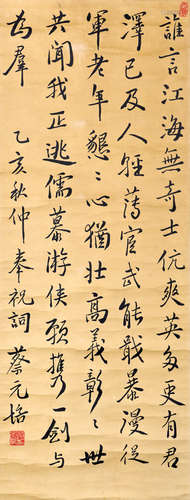 誰言江海無奇士伉爽英多更有君
澤已及人輕薄官武能戢暴漫從
軍老年懇〻心猶壯高義彰〻世
共聞我正逃儒慕游俠願攜一劍与
為羣 乙亥秋仲奉祝詞 蔡元培